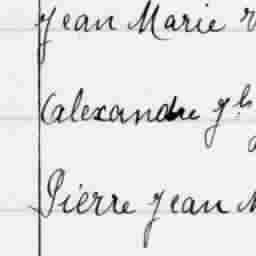 Jean Marie
Alexandre
Pierre Jean